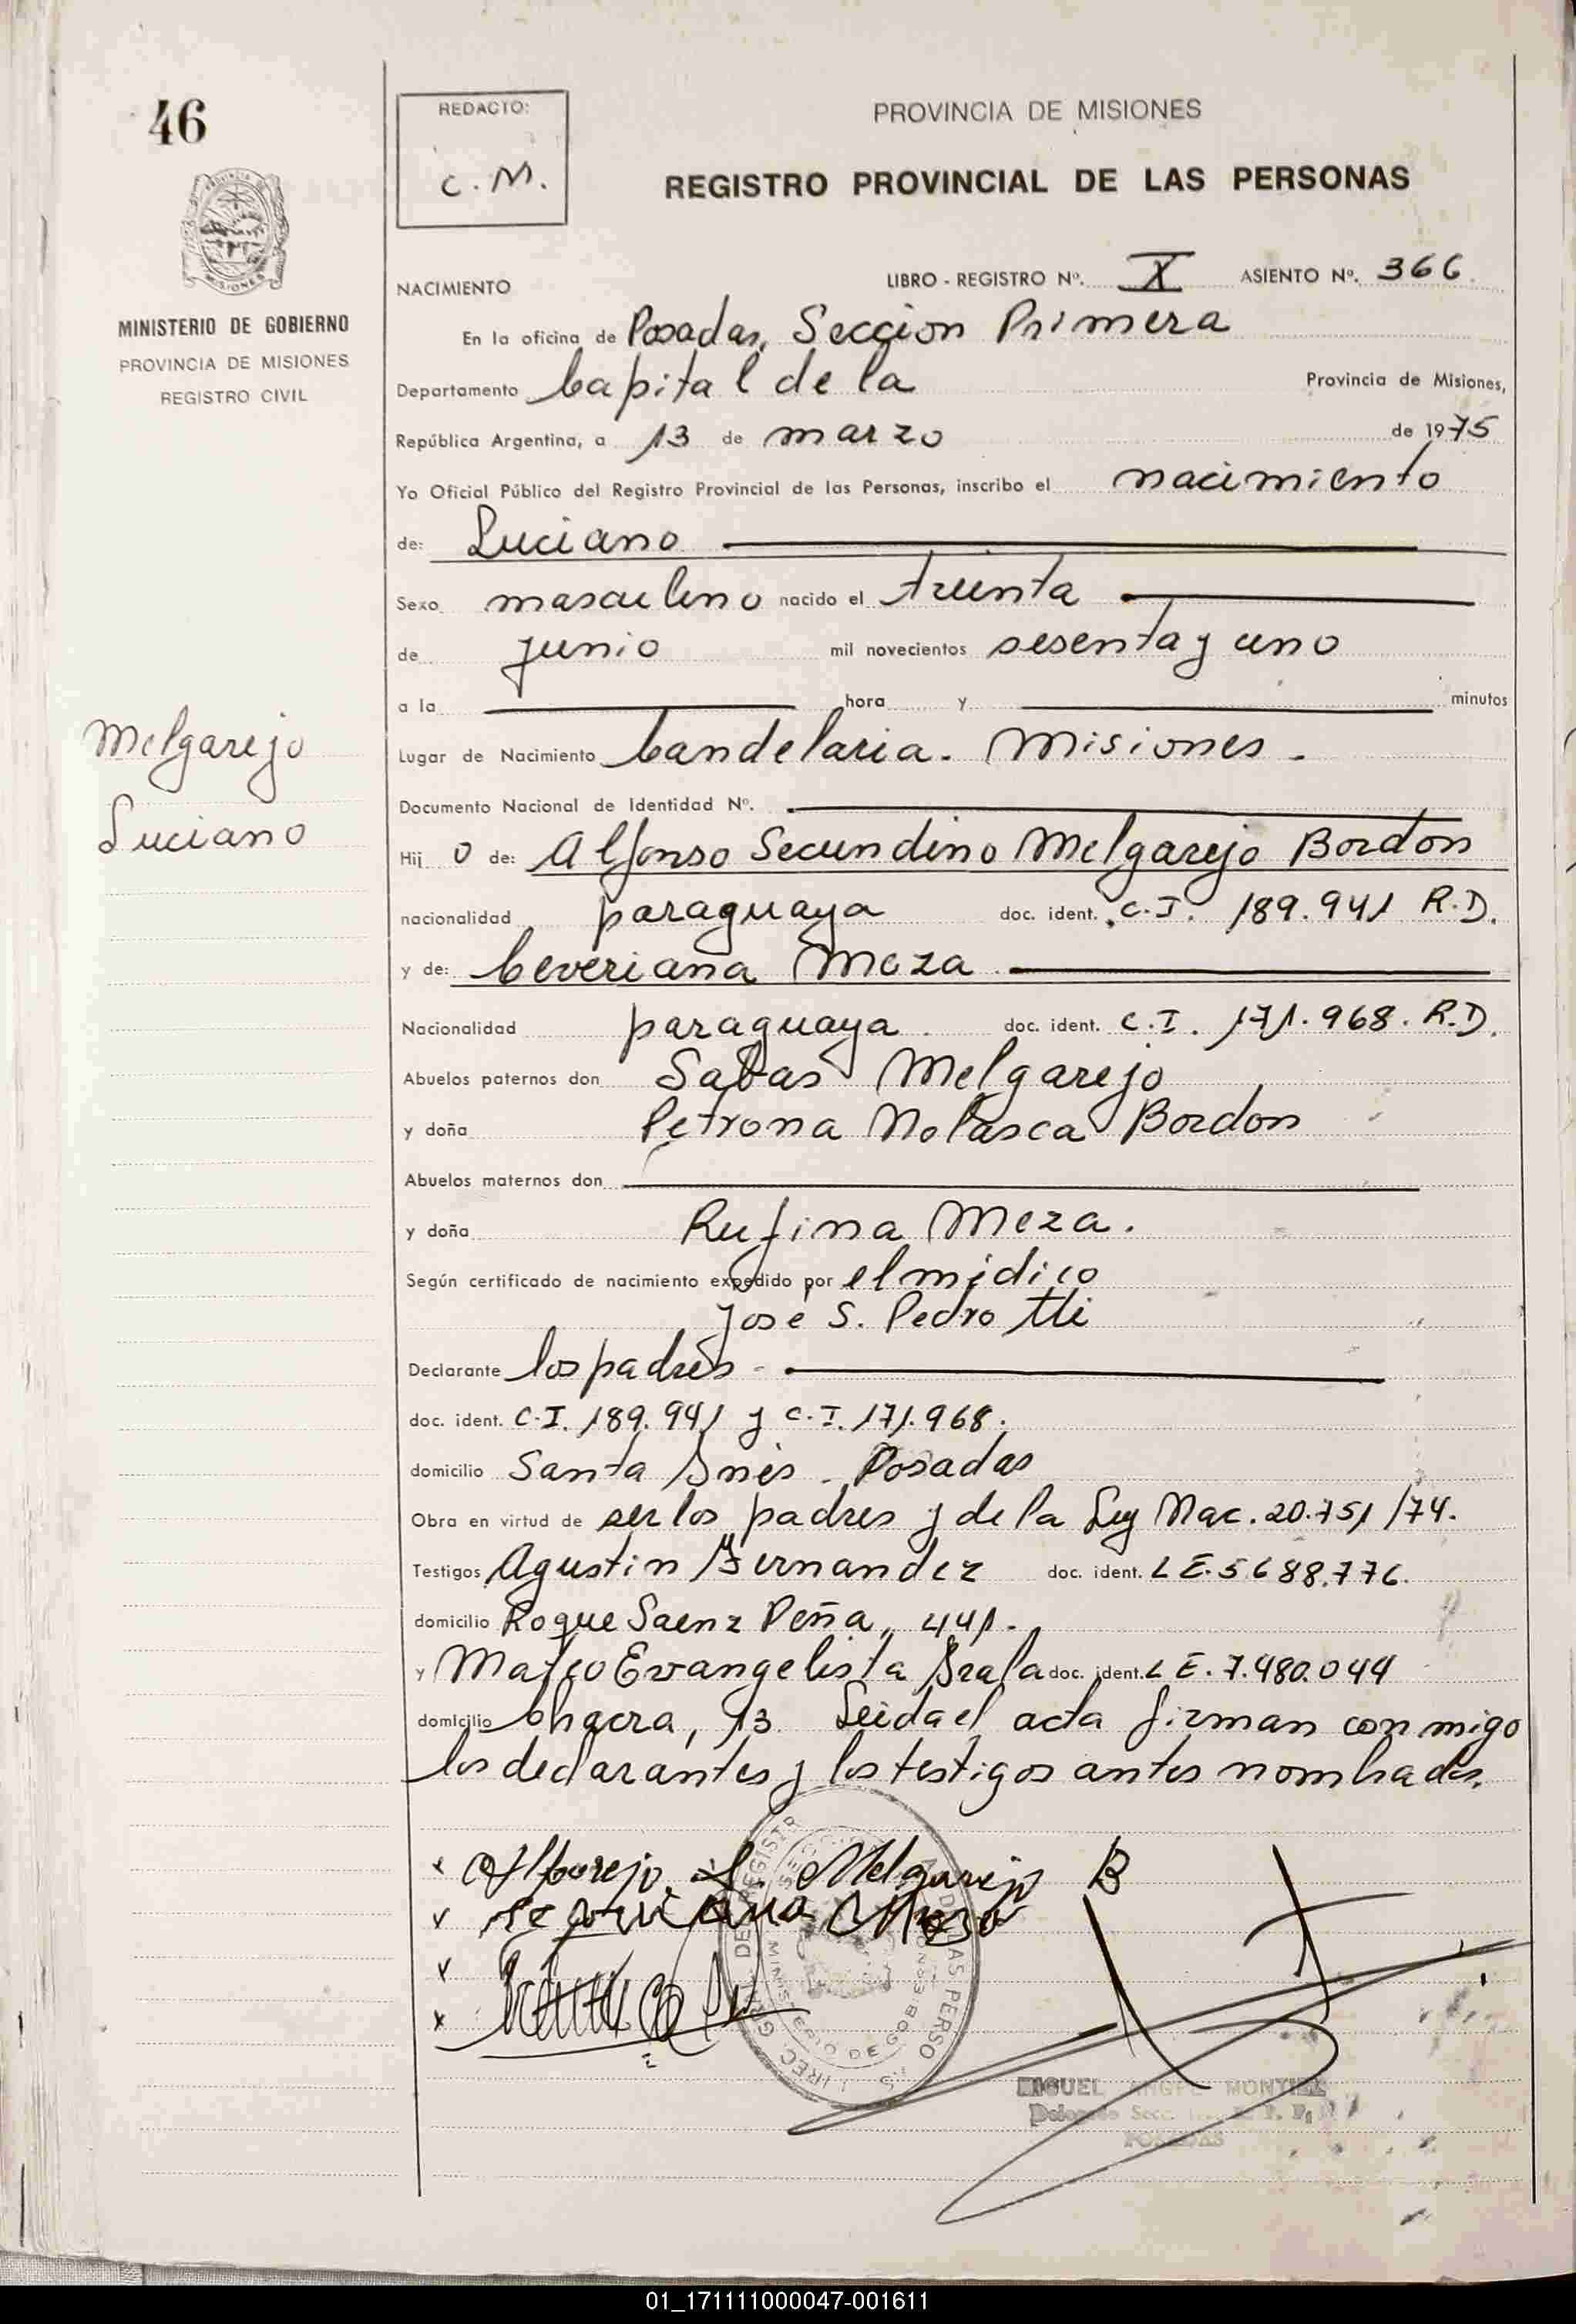 46
REDACTO:
C. M.
PROVINCIA DE MISIONES
REGISTRO PROVINCIAL DE LAS PERSONAS
MISIONES
MINISTERIO DE GOBIERNO
PROVINCIA DE MISIONES
REGISTRO CIVIL
NACIMIENTO LIBRO - REGISTRO Nº. X ASIENTO Nº. 366
En la oficina de Posadas, Seccion Primera
Departamento Capital de la Provincia de Misiones,
República Argentina, a 13 de marzo de 1975
Yo Oficial Público del Registro Provincial de las Personas, inscribo el nacimiento
de: Luciano
Sexo masculino nacido el treinta
de junio mil novecientos sesenta y uno
a la hora y minutos
Melgarejo
Luciano
Lugar de Nacimiento Candelaria. Misiones.
Documento Nacional de Identidad Nº.
Hij o de: Alfonso Secundino Melgarejo Bordon
nacionalidad paraguaya doc. ident. C.I. 189.941 R.D.
y de: Ceveriana Meza
Nacionalidad paraguaya doc. ident. C.I. 171.968. R.D.
Abuelos paternos don Sabas Melgarejo
y doña Petrona Nolasca Bordon
Abuelos maternos don
y doña Rufina Meza.
Según certificado de nacimiento expedido por el médico
José S. Pedrotti
Declarante los padres
doc. ident. C.I. 189.941 y C.I. 171.968.
domicilio Santa Inés. Posadas
Obra en virtud de ser los padres y de la Ley Nac. 20.751/74.
Testigos Agustin Fernandez doc. ident. L E. 5688.776.
domicilio Roque Saenz Peña, 441.
y Mateo Evangelista doc. ident. L E. 7.480.044
domicilio Chacra, 93 Leida el acta firman conmigo
los declarantes y los testigos antes nombrados.
S. Melgarejo B
MIGUEL ANGEL MONTIEL
POSADAS
MINISTERIO DE GOBIERNO
01_171111000047-001611